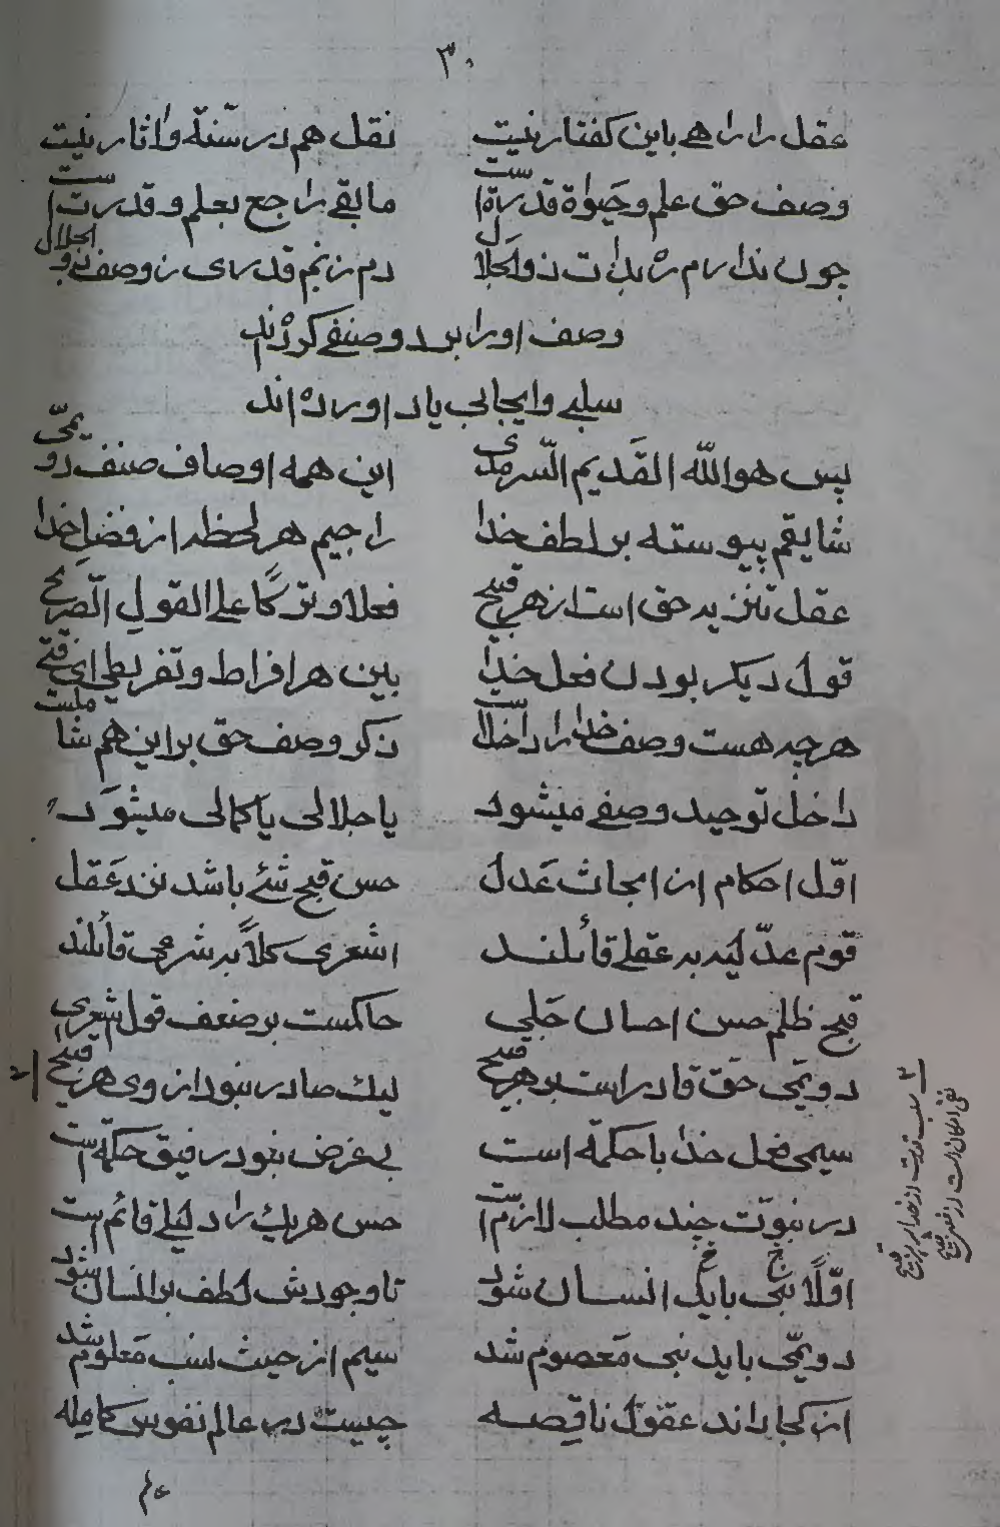 ۳۰
عقل را راهی باین کفتار نیست نقل هم در سنّة واثار نیست
وصف حق علم وحیوٰة قدرة است مابقی راجع بعلم وقدرت است
چون ندارم ره بذات ذوالجلال دم زنم قدری ز وصف ذوالجلال
وصف اورا بر دو صنفی کرده‌اند
سلبی وایجابی یاد اورده اند
پس هوالله القَدیم السّرمدی این همه اوصاف صنف دویمّی
شایقم پیوسته بر لطف خدا راجیم هر لحظه از فضلِ خدا
عقل تنزیه حق است از هر قبیح فعلا و ترکًا علی القولِ الصّریح
قول دیکر بودن فعل خدا بین هر افراط وتفریط ای فتی
هرچه هست وصف خدا را داخلاست ذکر وصف حق بر این هم شاملست
داخل توحید وصفی میشود یا جلالی یا کمالی میشوَد
اوّل احکام از ابحاث عَدل حسن قبح شئ باشد نزد عَقل
قوم عدّلیه به عقلی قائلند اشعری کلاً به شرعی قائلند
قبح ظلم حسن احسان جَلی حاکمست بر ضعف قول اشعری
دویمّی حقّ قادر است بر هر قبیح لیك صادر نبود از وی هر قبیح
سیمی فعل خدا با حکمة است بی غرض نبود رفیق حکمة است
در نبوّت چند مطلب لازم است حسن هریك را دلیلی قائم است
اوّلًا نبی باید انسان شود تا وجودش لطف بر انسان شود
دویمّی باید نبی مَعصوم شد سیم از حیث نسب مَعلوم شد
از کجا داند عقول ناقِصه چیست در عالم نفوس کامِله
۲ سلب قدرت از خدا بر هر قبیح
نفی امکان است از هر قبیح